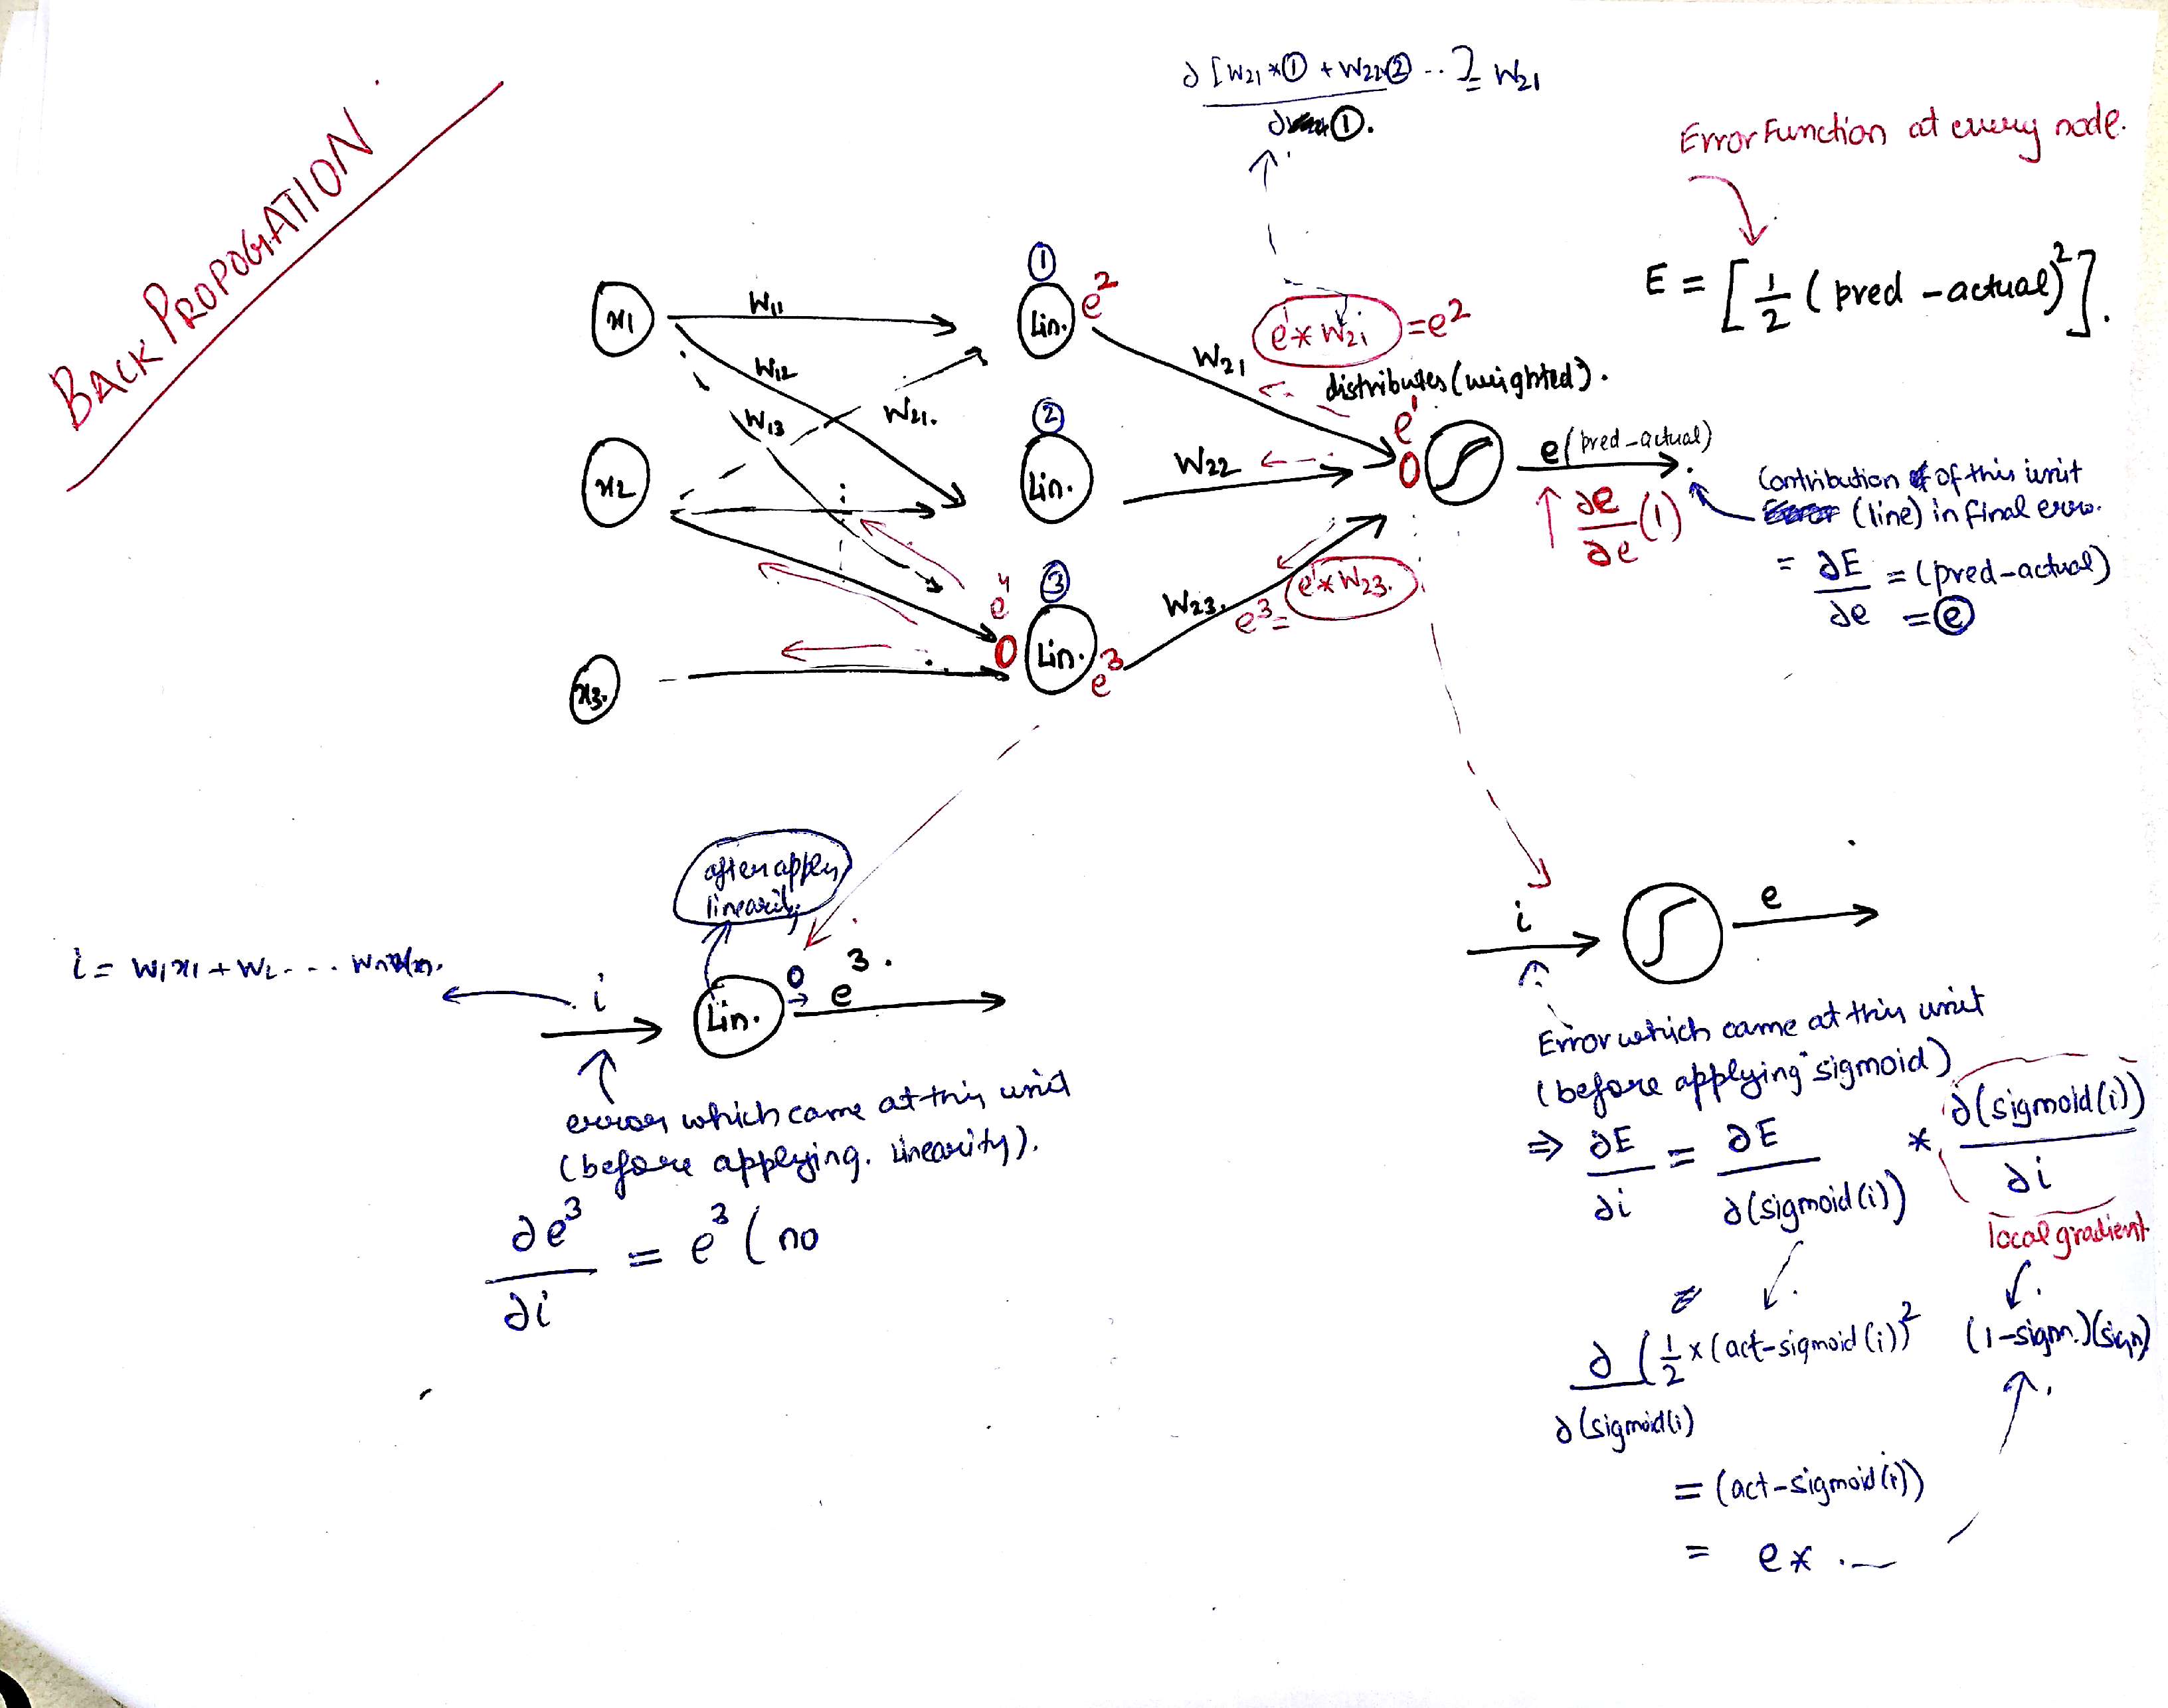 BACK PROPOGATION
∂[W21*① + W22② ..] = W21
∂ ①.
Error Function at every node.
E = [½(pred - actual)²].
x1
x2
x3.
W11
W12
W13
W21.
①
Lin.
e²
②
Lin.
③
Lin.
e³
e⁴
0
W21
W22
W23.
e¹* W2i = e²
distributes (weighted).
e¹
0
e³ = e¹* W23.
e (pred - actual)
∂e
∂e
(1)
Contribution of this unit
(line) in final error.
= ∂E = (pred - actual)
∂e = ⓔ
after apply
linearity
i = W1x1 + W2 . . . . Wnxn.
i
Lin.
0
e³.
error which came at this unit
(before applying. linearity).
∂e³ = e³ ( no
∂i
i
e
Error which came at this unit
(before applying sigmoid)
⇒ ∂E = ∂E * ∂(sigmoid(i))
∂i ∂(sigmoid(i)) ∂i
local gradient
∂ (½ x (act - sigmoid(i))²
∂(sigmoid(i)
(1-sigm.)(sigm)
= (act - sigmoid(i))
= e* . —